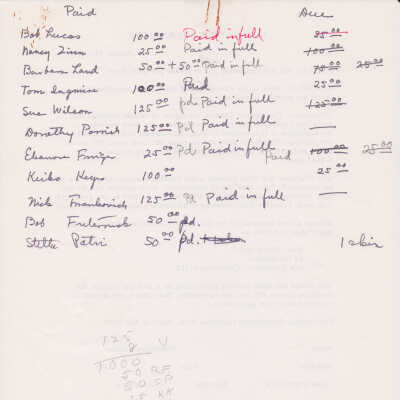 Paid Due
Bob Lucas 100.00 Paid in full 25.00
Nancy Zinn 25.00 Paid in full 100.00
Barbara Land 50.00 + 50.00 Paid in full 75.00 25.00
Tom 100.00 Paid 25.00
Sue Wilson 125.00 pd Paid in full 125.00
Dorothy Parrish 125.00 Pd Paid in full —
Eleanore 25.00 Pd Paid in full 100.00 25.00
Paid
Keiko 100.00 25.00
Nick Frankovich 125.00 Pd Paid in full —
Bob 50.00 pd.
Stella Petri 50.00 pd.
125
V
1000
50
50
25 KK